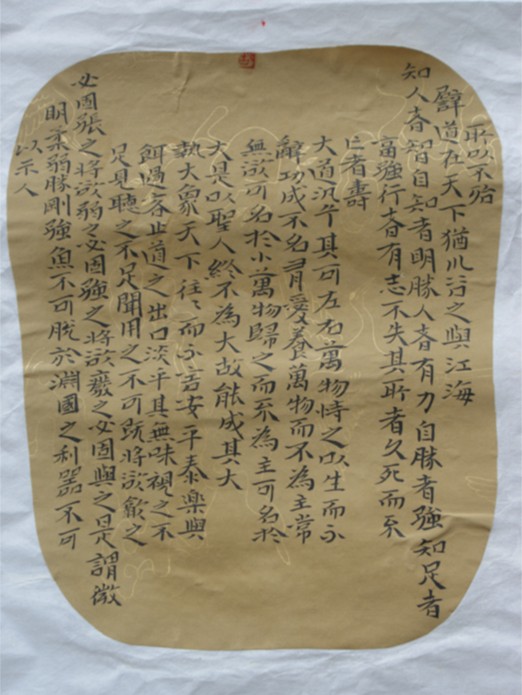 所以不殆
譬道在天下猶川谷之與江海
知人者智自知者明勝人者有力自勝者強知足者
富強行者有志不失其所者久死而不
亡者壽
大道汎兮其可左右萬物恃之以生而不
辭功成不名有愛養萬物而不為主常
無欲可名於小萬物歸之而不為主可名於
大是以聖人終不為大故能成其大
執大象天下往々而不害安平泰樂與
餌過客止道之出口淡乎其無味視之不
足見聽之不足聞用之不可既將欲歙之
必固張之將欲弱之必固強之將欲廢之必固與之是謂微
明柔弱勝剛強魚不可脫於淵國之利器不可
以示人